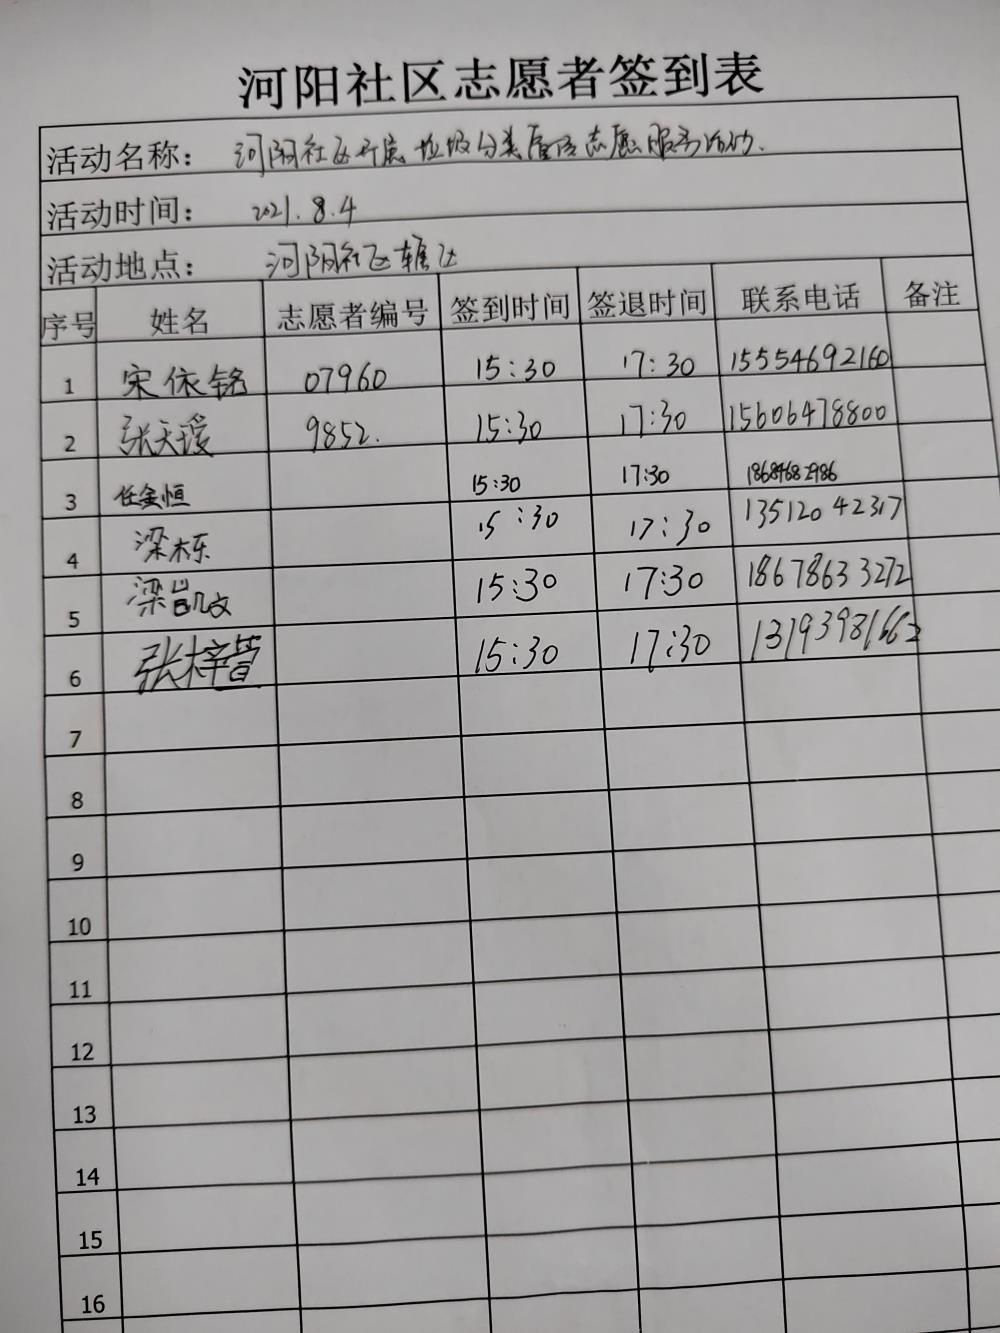 河阳社区志愿者签到表
活动名称： 河阳社区开展垃圾分类宣传志愿服务活动.
活动时间： 2021.8.4
活动地点： 河阳社区辖区
序号 姓名 志愿者编号 签到时间 签退时间 联系电话 备注
1 宋依铭 07960 15:30 17:30 15554692160
2 张天瑷 9852. 15:30 17:30 15606478800
3 任金恒 15:30 17:30
4 梁栋 15:30 17:30 13512042317
5 梁凯文 15:30 17:30 18678633272
6 张梓萱 15:30 17:30 13193981662
7
8
9
10
11
12
13
14
15
16